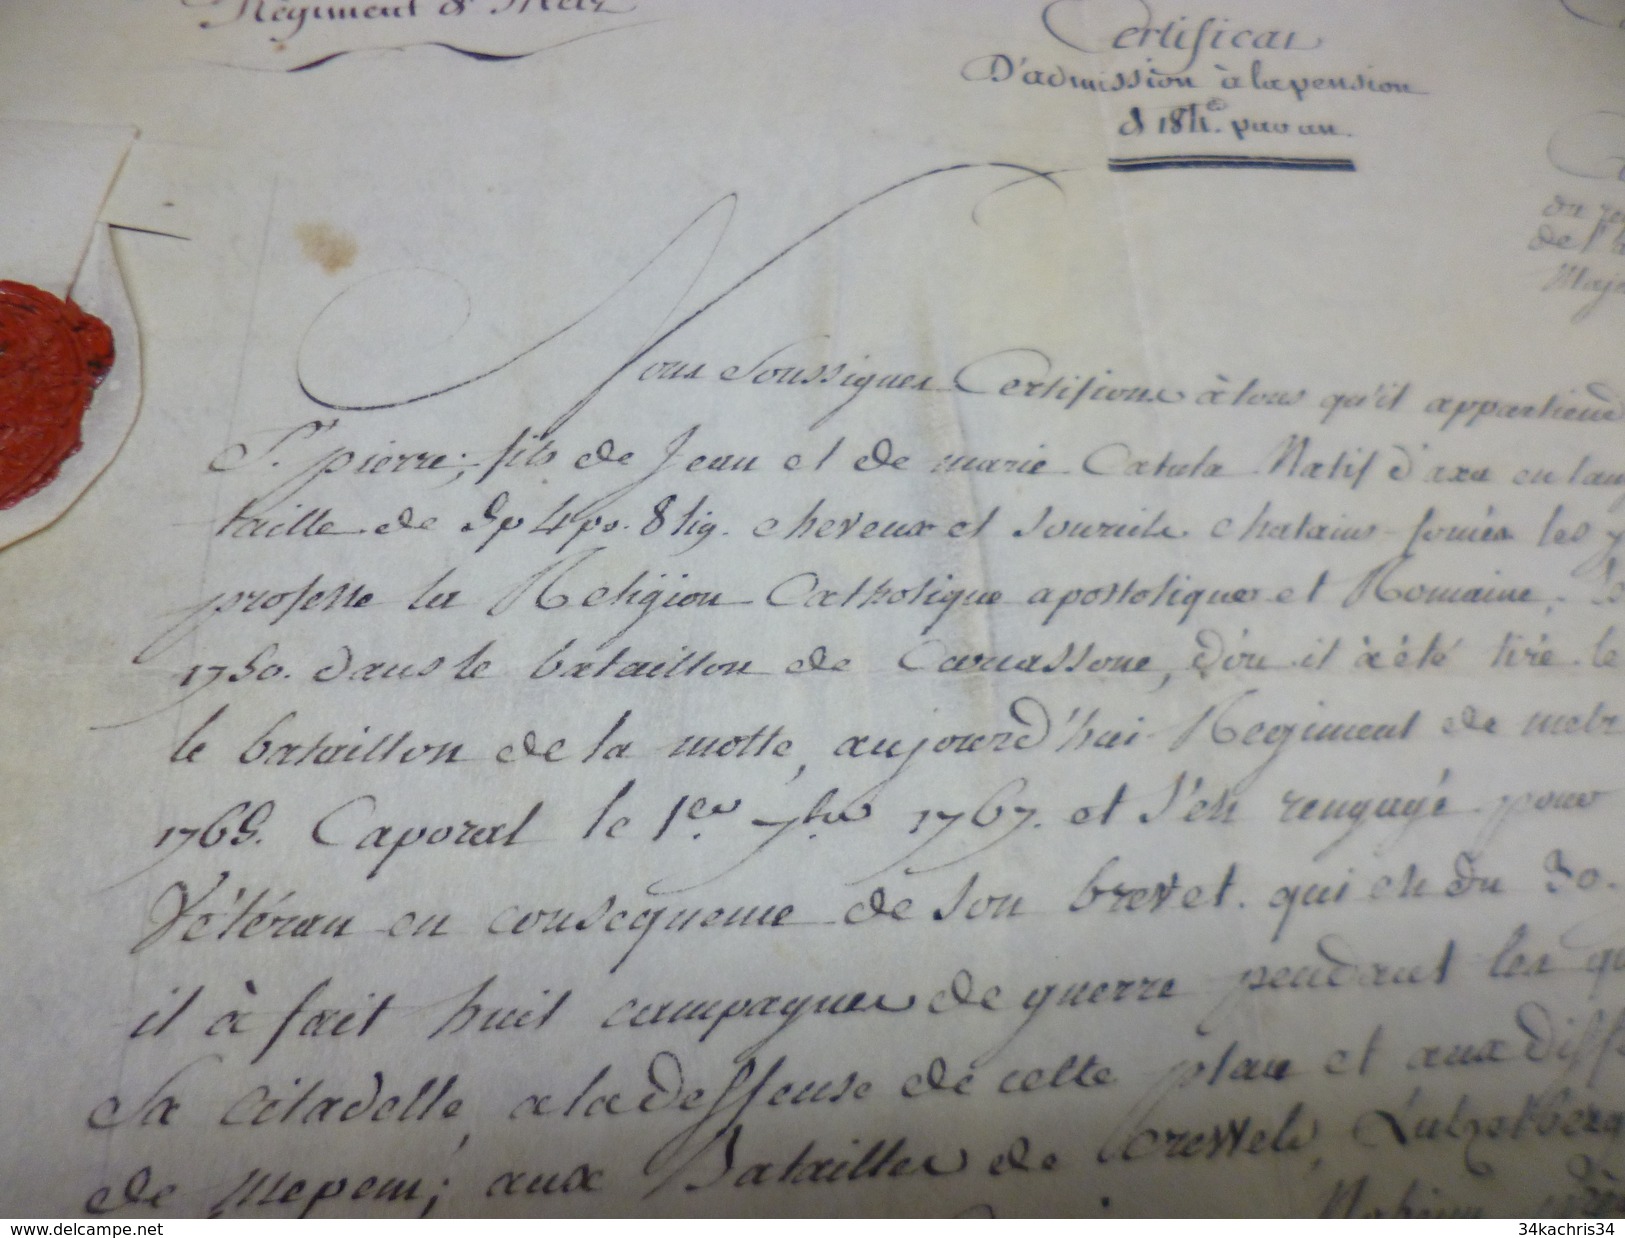 Régiment de Metz
Certificat
D'admission à la pension
de 184.tt par an.
du
de l'
Majo
Nous Soussignés Certifions à tous qu'il appartiend
St. pierre; fils de Jean et de marie Catala Natif d'axa en lang
taille de 5p 4po. 8 lig. cheveux et Sourcils chatains-foncés les y
professe la Religion Catholique apostolique et Romaine, Le
1750. dans le bataillon de Carcassone, d'ou il à été tiré le
le bataillon de la motte, aujourd'hui Regiment de metz
1765. Caporal le 1er. 7bre 1767. et S'en rengagé pour
Vétéran en consequence de Son brevet. qui en du 30.
il à fait huit campagnes de guerre pendant les qu
Sa Citadelle, a la deffense de cette place et aux diff
de Mepem; aux Batailles de Crevelt, Lutzelberg